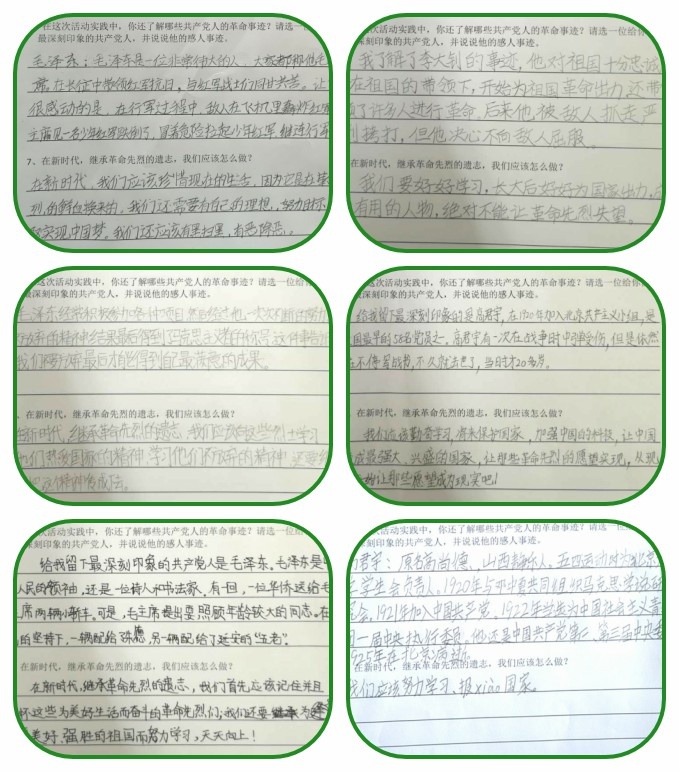 在这次活动实践中，你还了解哪些共产党人的革命事迹？请选一位给
最深刻印象的共产党人，并说说他的感人事迹。
毛泽东：毛泽东是一位非常伟大的人，大家都称他毛
席。在长征中带领红军抗日，与红军战士们同甘共苦。让
很感动的是，在行军过程中，敌人在飞机里轰炸红
主席见一名少年红军跌倒了，冒着危险拉起少年红军，继续行军
7、在新时代，继承革命先烈的遗志，我们应该怎么做？
在新时代，我们应该珍惜现在的生活，因为它是
烈的鲜血换来的，我们还需要有自己的理想，努力
实现中国梦。我们还应该有黑扫黑，有恶除恶。
次活动实践中，你还了解哪些共产党人的革命事迹？请选一位给你
深刻印象的共产党人，并说说他的感人事迹。
我了解了李大钊的事迹，他对祖国十分忠诚
在祖国的带领下，开始为祖国革命出力，还带
了许多人进行革命，后来他被敌人抓走严
刑拷打，但他决心不向敌人屈服。
在新时代，继承革命先烈的遗志，我们应该怎么做？
我们要好好学习，长大后好好为国家出力，
有用的人物，绝对不能让革命先烈失望。
这次活动实践中，你还了解哪些共产党人的革命事迹？请选一位给
最深刻印象的共产党人，并说说他的感人事迹。
毛泽东经常积极参加各种一次次不断的努力
的精神结果最后得到马克思主义者的领导
我们要最后才能得到自己最满意的成果。
在新时代，继承革命先烈的遗志，我们应该怎么做？
在新时代，继承革命先烈的遗志，我们应该向这些烈士学习
他们热爱国家的精神学习他们的精神
这次活动实践中，你还了解哪些共产党人的革命事迹？请选一位给你
深刻印象的共产党人，并说说他的感人事迹。
给我留下最深刻印象的是高君宇，在1920年加入北京共产主义小组，是
国最早的58名党员之一。高君宇有一次在战争时中弹受伤，但是依然
在不停奋战着，不久就去世了，当时才20多岁。
在新时代，继承革命先烈的遗志，我们应该怎么做？
我们应该勤奋学习，将来保护国家，加强中国的科技，让中国
成最强大、兴盛的国家，让那些革命先烈的愿望实现，从现
始让那些愿望成为现实吧！
次活动实践中，你还了解哪些共产党人的革命事迹？请选一
深刻印象的共产党人，并说说他的感人事迹。
给我留下最深刻印象的共产党人是毛泽东。毛泽东是
人民的领袖，还是一位诗人和书法家。有一日，一位华侨送给毛
席两辆小轿车。可是，毛主席提出要照顾年龄较大的同志。在
的坚持下，一辆配给陈德，另一辆配给了延安的“五老”。
在新时代，继承革命先烈的遗志，我们应该怎么做？
在新时代，继承革命先烈的遗志，我们首先应该记住并且
怀这些为美好生活而奋斗的革命先烈们，我们还要继承为
美好、强胜的祖国而努力学习，天天向上！
次活动实践中，你还了解哪些共产党人的革命事迹？请选一位给
深刻印象的共产党人，并说说他的感人事迹。
君宇：原名高尚德、山西静乐人。五四运动时为北京
学学生会负责人。1920年与邓中夏共同组织马克思学说研
会，1921年加入中国共产党。1922年当选为中国社会主义青
一届中央执行委员，他还是中国共产党第二、第三届中央委
925年在北京病逝。
在新时代，继承革命先烈的遗志，我们应该怎么做？
我们应该努力学习，报xiào国家。